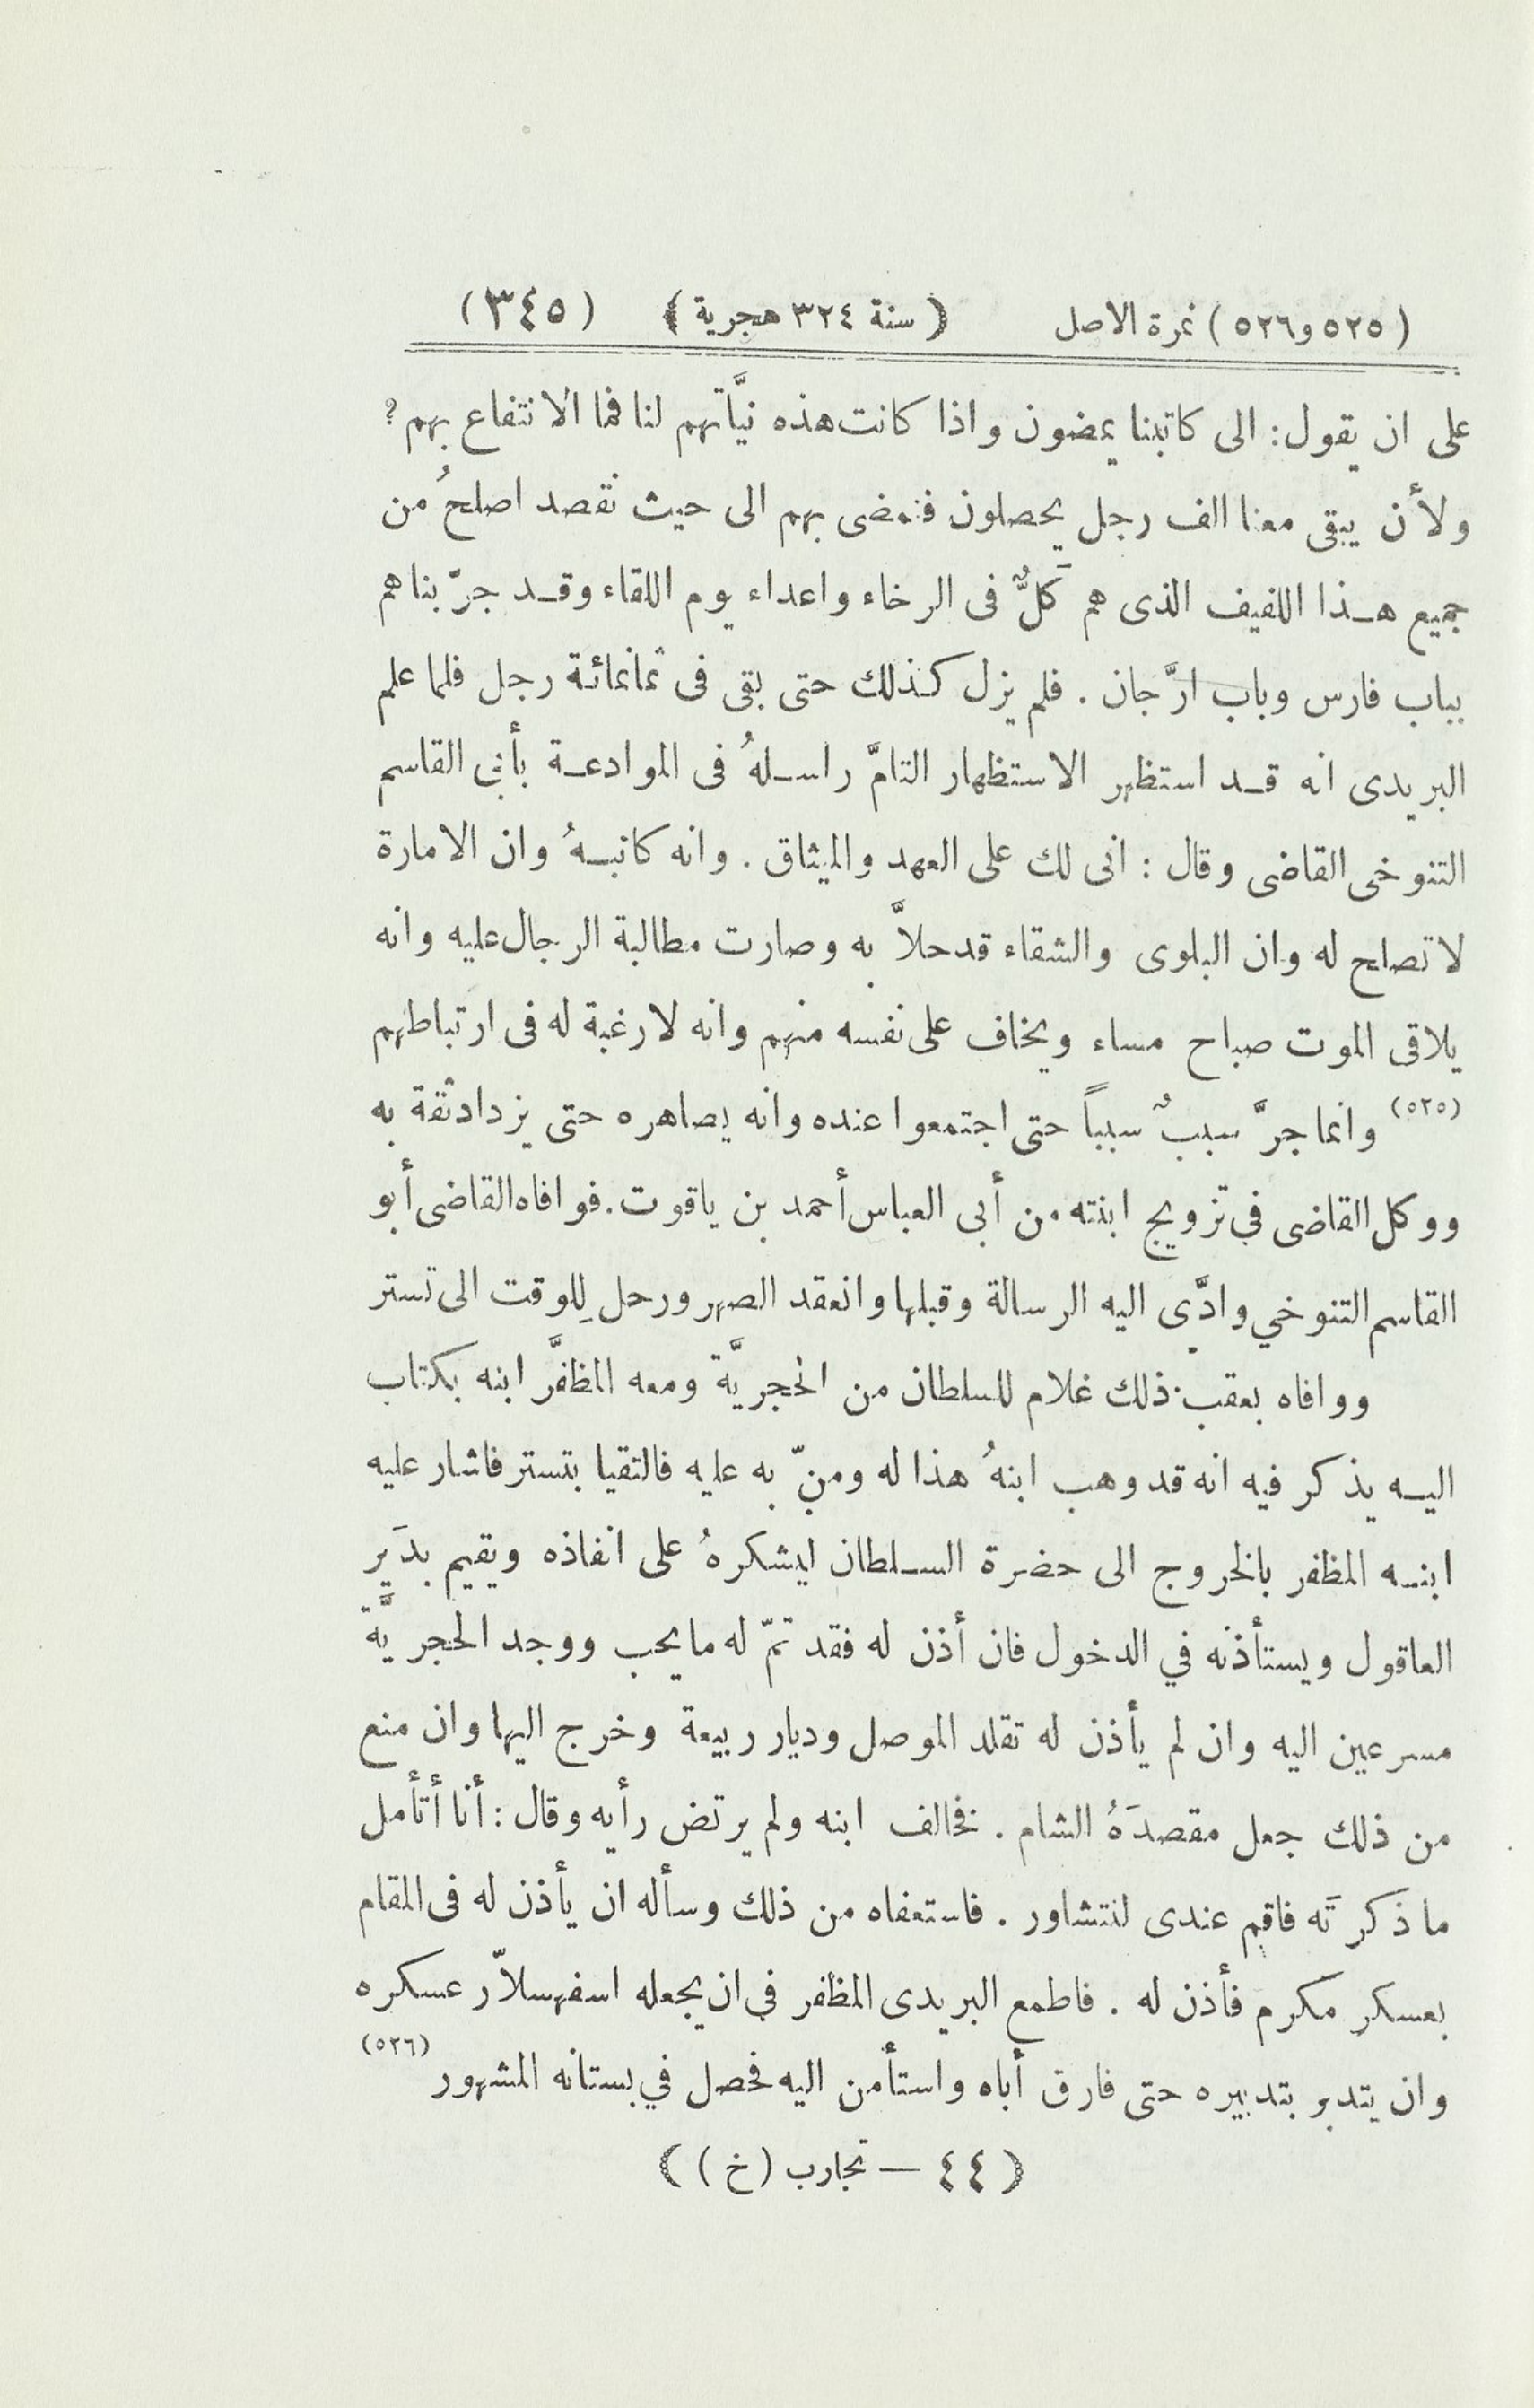 (٥٢٥ و٥٢٦) نمرة الاصل ﴿ سنة ٣٢٤ هجرية ﴾ (٣٤٥)
على ان يقول: الى كاتبنا يمضون واذا كانت هذه نيَّاتهم لنا فما الانتفاع بهم؟
ولأن يبقى معنا الف رجل يحصلون فنمضى بهم الى حيث نقصد اصلحُ من
جميع هـذا اللفيف الذى هم كَلٌّ فى الرخاء واعداء يوم اللقاء وقـد جرّبناهم
بباب فارس وباب ارَّجان . فلم يزل كذلك حتى بقى فى ثمانمائة رجل فلما علم
البريدى انه قـد استظهر الاستظهار التامَّ راسـلهُ فى الموادعـة بأبى القاسم
التنوخى القاضى وقال : انى لك على العهد والميثاق . وانه كاتبـهُ وان الامارة
لا تصلح له وان البلوى والشقاء قد حلاَّ به وصارت مطالبة الرجال عليه وانه
يلاقى الموت صباح مساء ويخاف على نفسه منهم وانه لا رغبة له فى ارتباطهم
(٥٢٥) وانما جرَّ سببٌ سبباً حتى اجتمعوا عنده وانه يصاهره حتى يزداد ثقة به
ووكل القاضى في تزويج ابنته من أبى العباس أحمد بن ياقوت. فوافاه القاضى أبو
القاسم التنوخي وادَّى اليه الرسالة وقبلها وانعقد الصهر ورحل لِلوقت الى تستر
ووافاه بعقب ذلك غلام للسلطان من الحجريَّة ومعه المظفَّر ابنه بكتاب
اليـه يذكر فيه انه قد وهب ابنهُ هذا له ومنّ به عليه فالتقيا بتستر فاشار عليه
ابنـه المظفر بالخروج الى حضرة السـلطان ليشكرهُ على انفاذه ويقيم بدَير
العاقول ويستأذنه في الدخول فان أذن له فقد تمّ له ما يحب ووجد الحجريَّة
مسرعين اليه وان لم يأذن له تقلد الموصل وديار ربيعة وخرج اليها وان منع
من ذلك جعل مقصدَهُ الشام . فخالف ابنه ولم يرتض رأيه وقال : أنا أتأمل
ما ذَكرتَه فاقم عندى لنتشاور . فاستعفاه من ذلك وسأله ان يأذن له فى المقام
بعسكر مكرم فأذن له . فاطمع البريدى المظفر في ان يجعله اسفهسلاّر عسكره
وان يتدبر بتدبيره حتى فارق أباه واستأمن اليه فحصل في بستانه المشهور (٥٢٦)
﴿ ٤٤ — تجارب (خ) ﴾